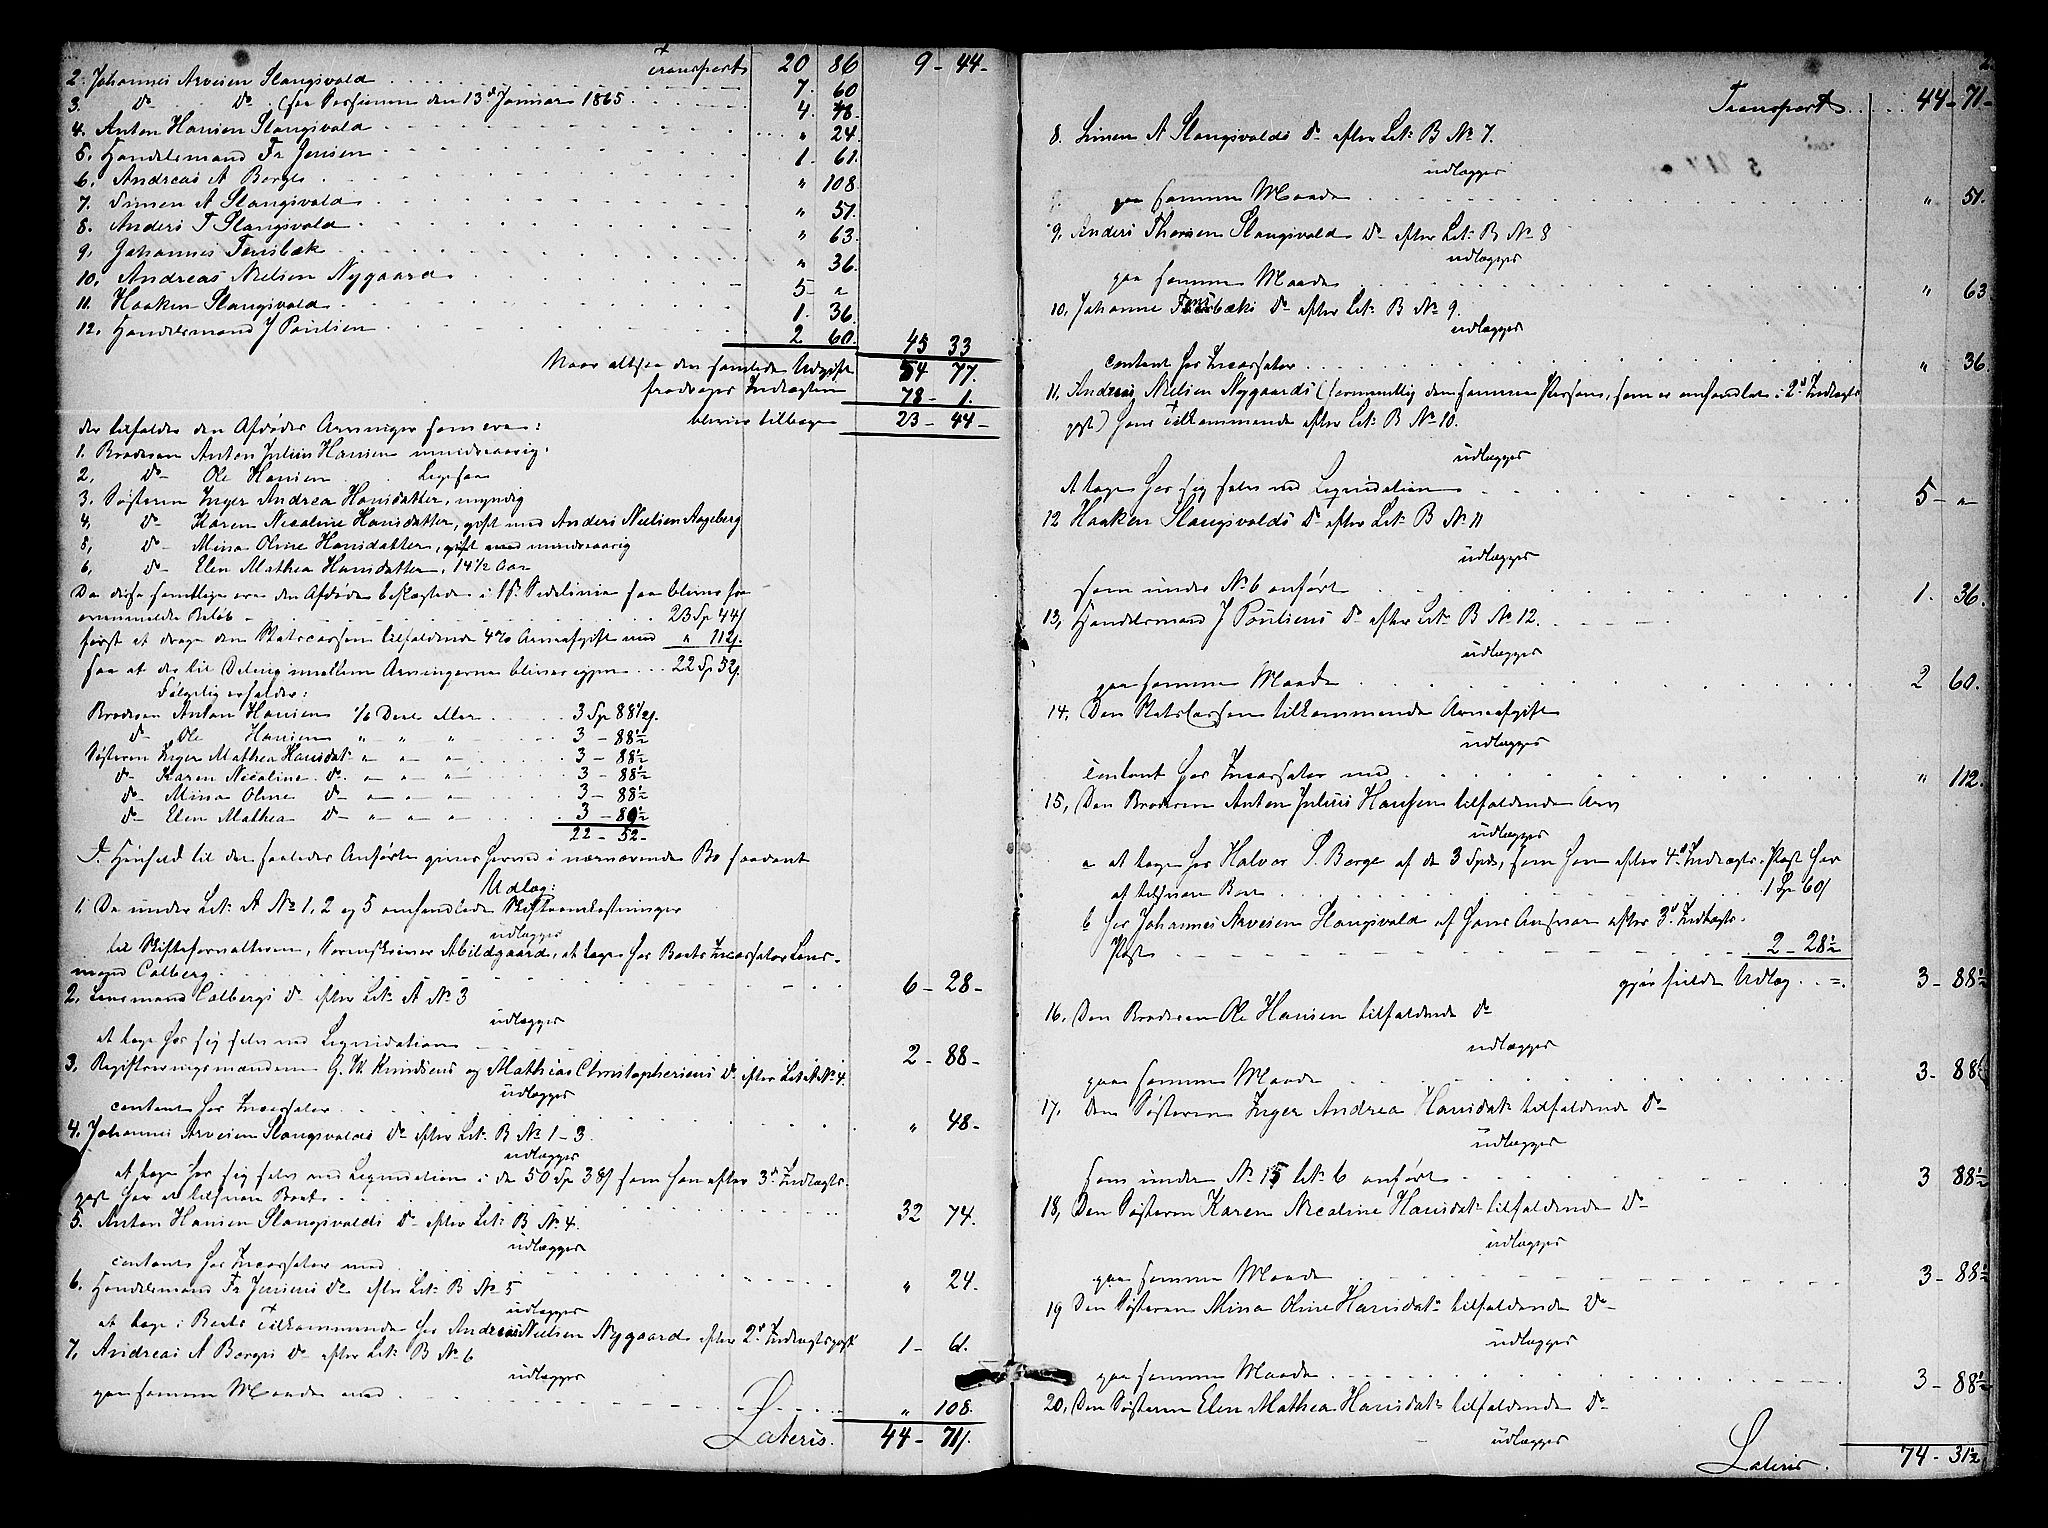 Transport 20 86 9 - 44 -
2. Johannes Arvesen Slangsvold 7. 60
3. do do (se Sessionen den 13de Januar 1865 4. 48.
4. Anton Hansen Slangsvold " 24.
5. Handelsmand Fr Jensen 1. 61.
6. Andreas A Borge " 108.
7. Simen A Slangsvold " 51.
8. Anders T Slangsvold " 63.
9. Johannes Tensbæk " 36.
10. Andreas Nielsen Nygaard 5 "
11. Haaken Slangsvold 1. 36.
12. Handelsmand J Poulsen 2 60. 45 33
Naar altsaa den samlede Udgift 54 77.
fradrages Indtægten 78 - 1.
bliver tilbage 23 - 44 -
der tilfalder den Afdødes Arvinger som ere:
1. Broderen Anton Julius Hansen mindreaarig.
2. do - Ole Hansen Ligesaa
3. Søsteren Inger Andrea Hansdatter, myndig
4. do Karen Nicoline Hansdatter, gift med Anders Nielsen Aageberg
5. do - Mina Oline Hansdatter, gift med mindreaarig
6. do - Elen Mathea Hansdatter, 14 1/2 Aar
Da disse samtlige ere den Afdøde beslægtede i Sidelinie saa bliver fra
ovenmeldte Beløb 23 Sp 44 s
først at drage den Statscassen tilfaldende 4% Arveafgift med " 112 s.
saa at der til Deling imellem Arvingerne bliver igjen 22 Sp 52 s.
Følgelig erholder:
Broderen Anton Hansen 1/6 Deel eller 3 Sp 88 1/2 s.
do - Ole Hansen " " " 3 - 88 1/2
Søsteren Inger Mathea Hansdatr " " " 3 - 88 1/2
do - Karen Nicoline do " " " 3 - 88 1/2
do - Mina Oline do - " " " 3 - 88 1/2
do - Elen Mathea do - " " " 3 - 89 1/2
22 - 52 -
I Henhold til det saaledes Anførte gives herved i nærværende Bo saadant
Udlæg:
1. De under Litr A No 1, 2 og 5 omhandlede Skifteomkostninger
udlægges
til Skifteforvalteren, Sorenskriver Abildgaard, at tage hos Boets Incassator Lens-
mand Colberg 6 - 28 -
2. Lensmand Colbergs do efter Litr A No 3
udlægges
at tage hos sig selv ved Liqvidation 2 - 88 -
3. Registreringsmændene G. M. Knudsens og Mathias Christophersens do efter Litr A No 4.
udlægges
contant hos Incassator " 48 -
4. Johannes Arvesen Slangsvolds do efter Litr B No 1 - 3.
udlægges
at tage hos sig selv ved Liqvidation i de 50 Sp 38 s som han efter 3de Indtægts-
post har at tilsvare Boet 32 74.
5. Anton Hansen Slangsvolds do efter Litr B No 4.
udlægges
contant hos Incassator med " 24.
6. Handelsmand Fr Jensens do efter Litr B No 5
udlægges
at tage i Boets Tilkommende hos Andreas Nielsen Nygaard efter 2den Indtægtspost 1 - 61.
7. Andreas A Borges do efter Litr B No 6
udlægges
paa samme Maade med " 108.
Lateris. 44 - 71 s.
Transport 44 - 71 -
8. Simen A Slangsvolds do efter Litr B No 7.
udlægges
paa samme Maade " 51.
9. Anders Thorsen Slangsvolds do efter Litr B No 8
udlægges
paa samme Maade " 63
10. Johannes Tensbæks do efter Litr B No 9.
udlægges
contant hos Incassator " 36.
11. Andreas Nielsen Nygaards (formentlig den samme Person, som er omhandlet i 2den Indtægts
post) hans Tilkommende efter Litr B No 10.
udlægges
At tage hos sig selv ved Liqvidation 5 - "
12 Haaken Slangsvolds do efter Litr B No 11
udlægges
som under No 6 anført 1. 36.
13. Handelsmand J Poulsens do efter Litr B No 12.
udlægges
paa samme Maade 2 60.
14. Den Statscassen tilkommende Arveafgift
udlægges
contant hos Incassator med " 112.
15. Den Broderen Anton Julius Hansen tilfaldende Arv
udlægges
a at tage hos Halvor P. Borge af de 3 Spd, som han efter 4de Indtægts-Post har
at tilsvare Boet 1 Sp 60 s
b hos Johannes Arvesen Slangsvold af hans Ansvar efter 3de Indtægts-
Post 2 - 28 1/2
gjør fulde Udlæg 3 - 88 1/2
16. Den Broderen Ole Hansen tilfaldende do
udlægges
paa samme Maade 3 - 88 1/2
17. Den Søsteren Inger Andrea Hansdatr tilfaldende do -
udlægges
som under No 15 Litr b anført 3 88 1/2
18. Den Søsteren Karen Nicoline Hansdatr tilfaldende do -
udlægges
paa samme Maade 3 - 88 1/2
19 Den Søsteren Mina Oline Hansdatr tilfaldende do -
udlægges
paa samme Maade 3 - 88 1/2
20. Den Søsteren Elen Mathea Hansdatr tilfaldende do -
udlægges
Lateris. 74 - 31 1/2